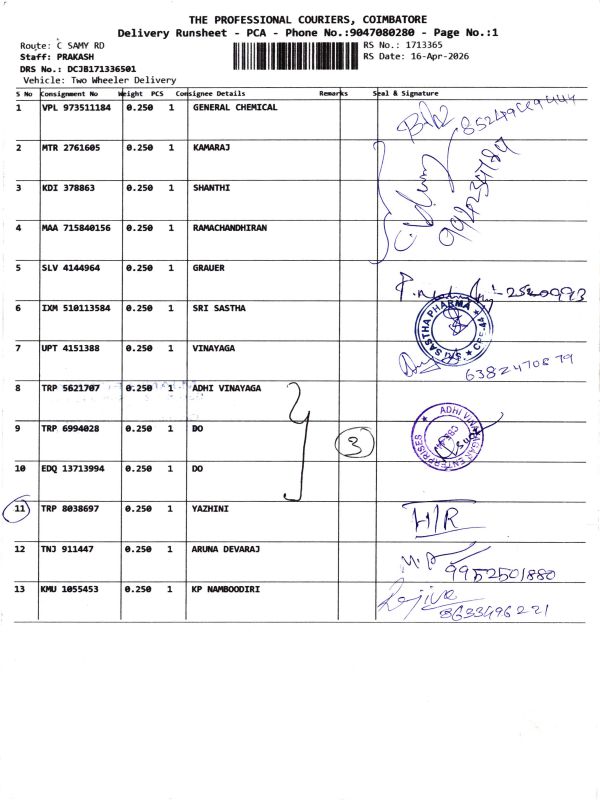 THE PROFESSIONAL COURIERS, COIMBATORE
Delivery Runsheet - PCA - Phone No.:9047080280 - Page No.:1
Route: C SAMY RD
RS No.: 1713365
Staff: PRAKASH
RS Date: 16-Apr-2026
DRS No.: DCJB171336501
Vehicle: Two Wheeler Delivery
S No Consignment No Weight PCS Consignee Details Remarks Seal & Signature
1 VPL 973511184 0.250 1 GENERAL CHEMICAL
2 MTR 2761605 0.250 1 KAMARAJ
3 KDI 378863 0.250 1 SHANTHI
4 MAA 715840156 0.250 1 RAMACHANDHIRAN
5 SLV 4144964 0.250 1 GRAUER 2520993
6 IXM 510113584 0.250 1 SRI SASTHA SRI SASTHA PHARMA
7 UPT 4151388 0.250 1 VINAYAGA 6382470879
8 TRP 5621707 0.250 1 ADHI VINAYAGA
9 TRP 6994028 0.250 1 DO 3 ADHI VINAYAGAN ENTERPRISES
10 EDQ 13713994 0.250 1 DO
11 TRP 8038697 0.250 1 YAZHINI H/R
12 TNJ 911447 0.250 1 ARUNA DEVARAJ 9952501880
13 KMU 1055453 0.250 1 KP NAMBOODIRI Rajiva 8633496221